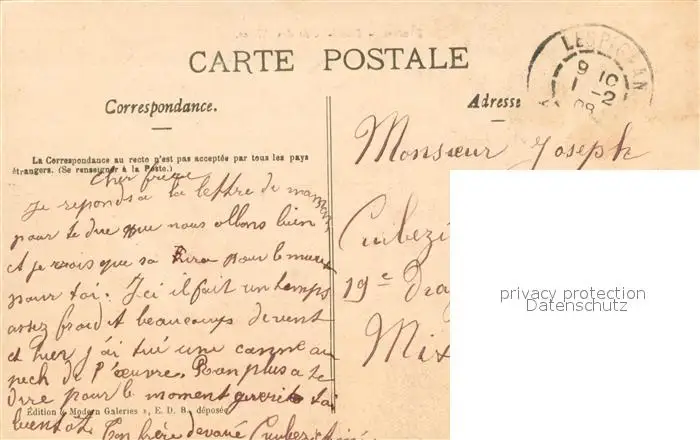 CARTE POSTALE
Correspondance.
Adresse
LESPIGNAN
9 10
1 -2
08
La Correspondance au recto n'est pas acceptée par tous les pays
étrangers. (Se renseigner à la Poste.)
Cher frère
Je reponds a la lettre de maman
pour te dire que nous allons bien
et je vois que sa sera pour le mieux
pour toi. Ici il fait un temps
assez froid et beaucoups de vent
et hier j'ai tué une canne au
pech de l'œuvre. Rien plus a te
dire pour le moment gueri toi
bientôt. Ton frère devoué
Édition « Modern Galeries », E. D. B., déposée
Monsieur Joseph
19e Dra
privacy protection
Datenschutz